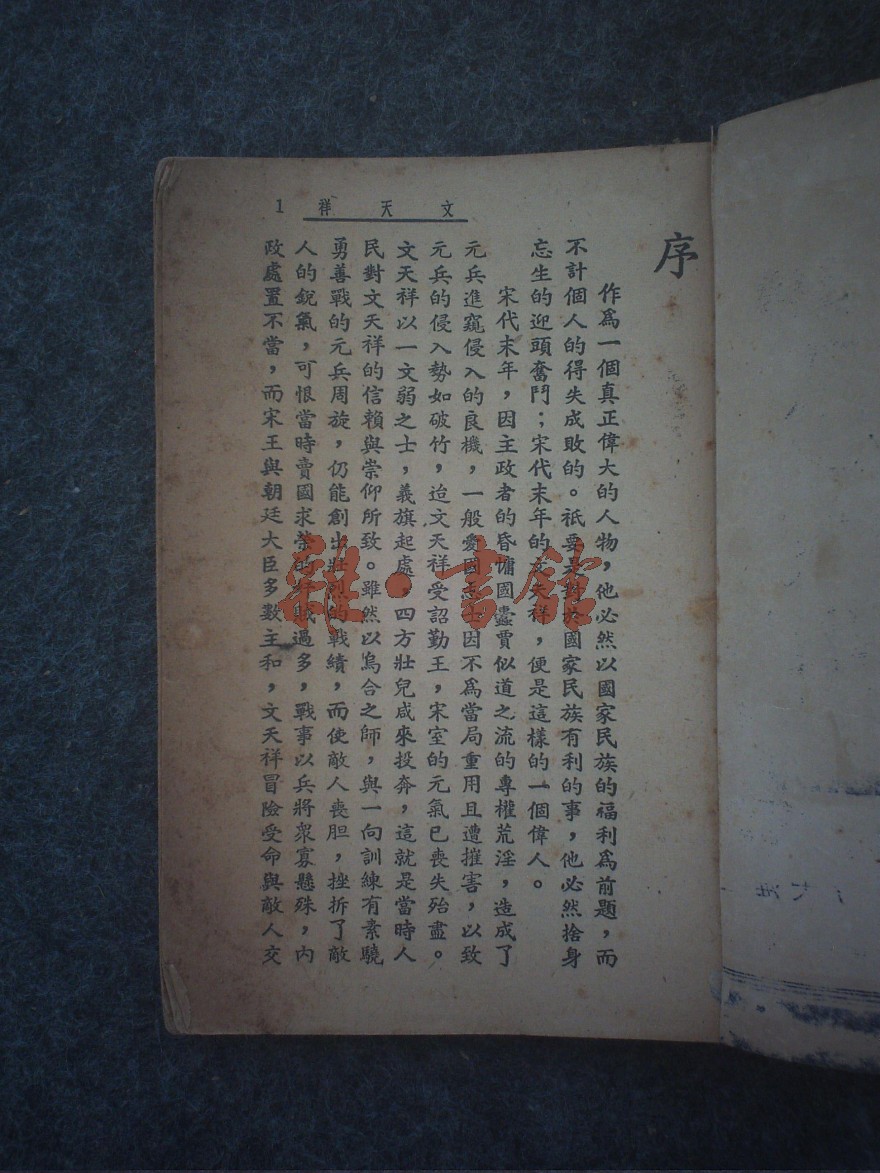 文天祥 1
序
作爲一個真正偉大的人物，他必然以國家民族的福利爲前題，而
不計個人的得失成敗的。祇要是對於國家民族有利的事，他必然捨身
忘生的迎頭奮鬥；宋代末年的文天祥，便是這樣的一個偉人。
宋代末年，因主政者的昏慵國蠹賈似道之流的專權荒淫，造成了
元兵進窺侵入的良機，一般愛國志士因不爲當局重用且遭摧害，以致
元兵的侵入勢如破竹，迨文天祥受詔勤王，宋室的元氣已喪失殆盡。
文天祥以一文弱之士，義旗起處，四方壯兒咸來投奔，這就是當時人
民對文天祥的信賴與崇仰所致。雖然以烏合之師，與一向訓練有素驍
勇善戰的元兵周旋，仍能創出壯烈的戰績，而使敵人喪胆，挫拆了敵
人的銳氣，可恨當時賣國求榮的奸賊過多，戰事以兵將衆寡懸殊，內
政處置不當，而宋王與朝廷大臣多數主和，文天祥冒險受命與敵人交
雜·書館